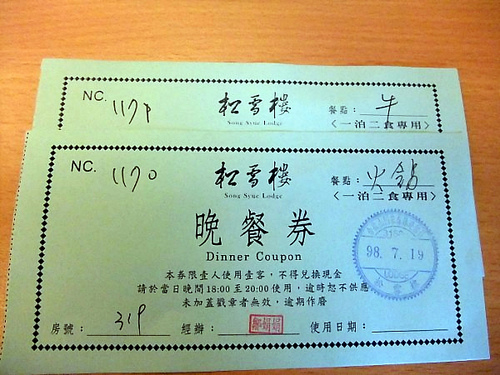 NC. 1171 松雪樓 餐點： 牛
Song Syue Lodge 〈一泊二食專用〉
NC. 1170 松雪樓 餐點： 火鍋
Song Syue Lodge 〈一泊二食專用〉
晚餐券
Dinner Coupon
98. 7. 19
本券限壹人使用壹客，不得兌換現金
請於當日晚間18:00至20:00使用，逾時恕不供應
未加蓋戳章者無效，逾期作廢
房號： 319 經辦： 使用日期：